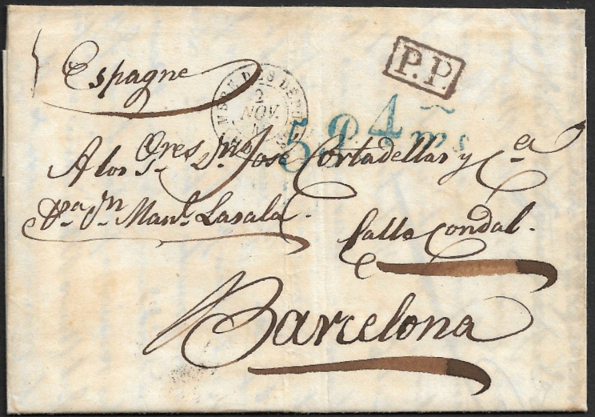 Espagne
P.P.
2
NOV.
5R. 4ms
A los Sres. Dn. José Cortadellas y Ca
Pa. Dn. Manl. Lasala.
Calle Condal.
Barcelona